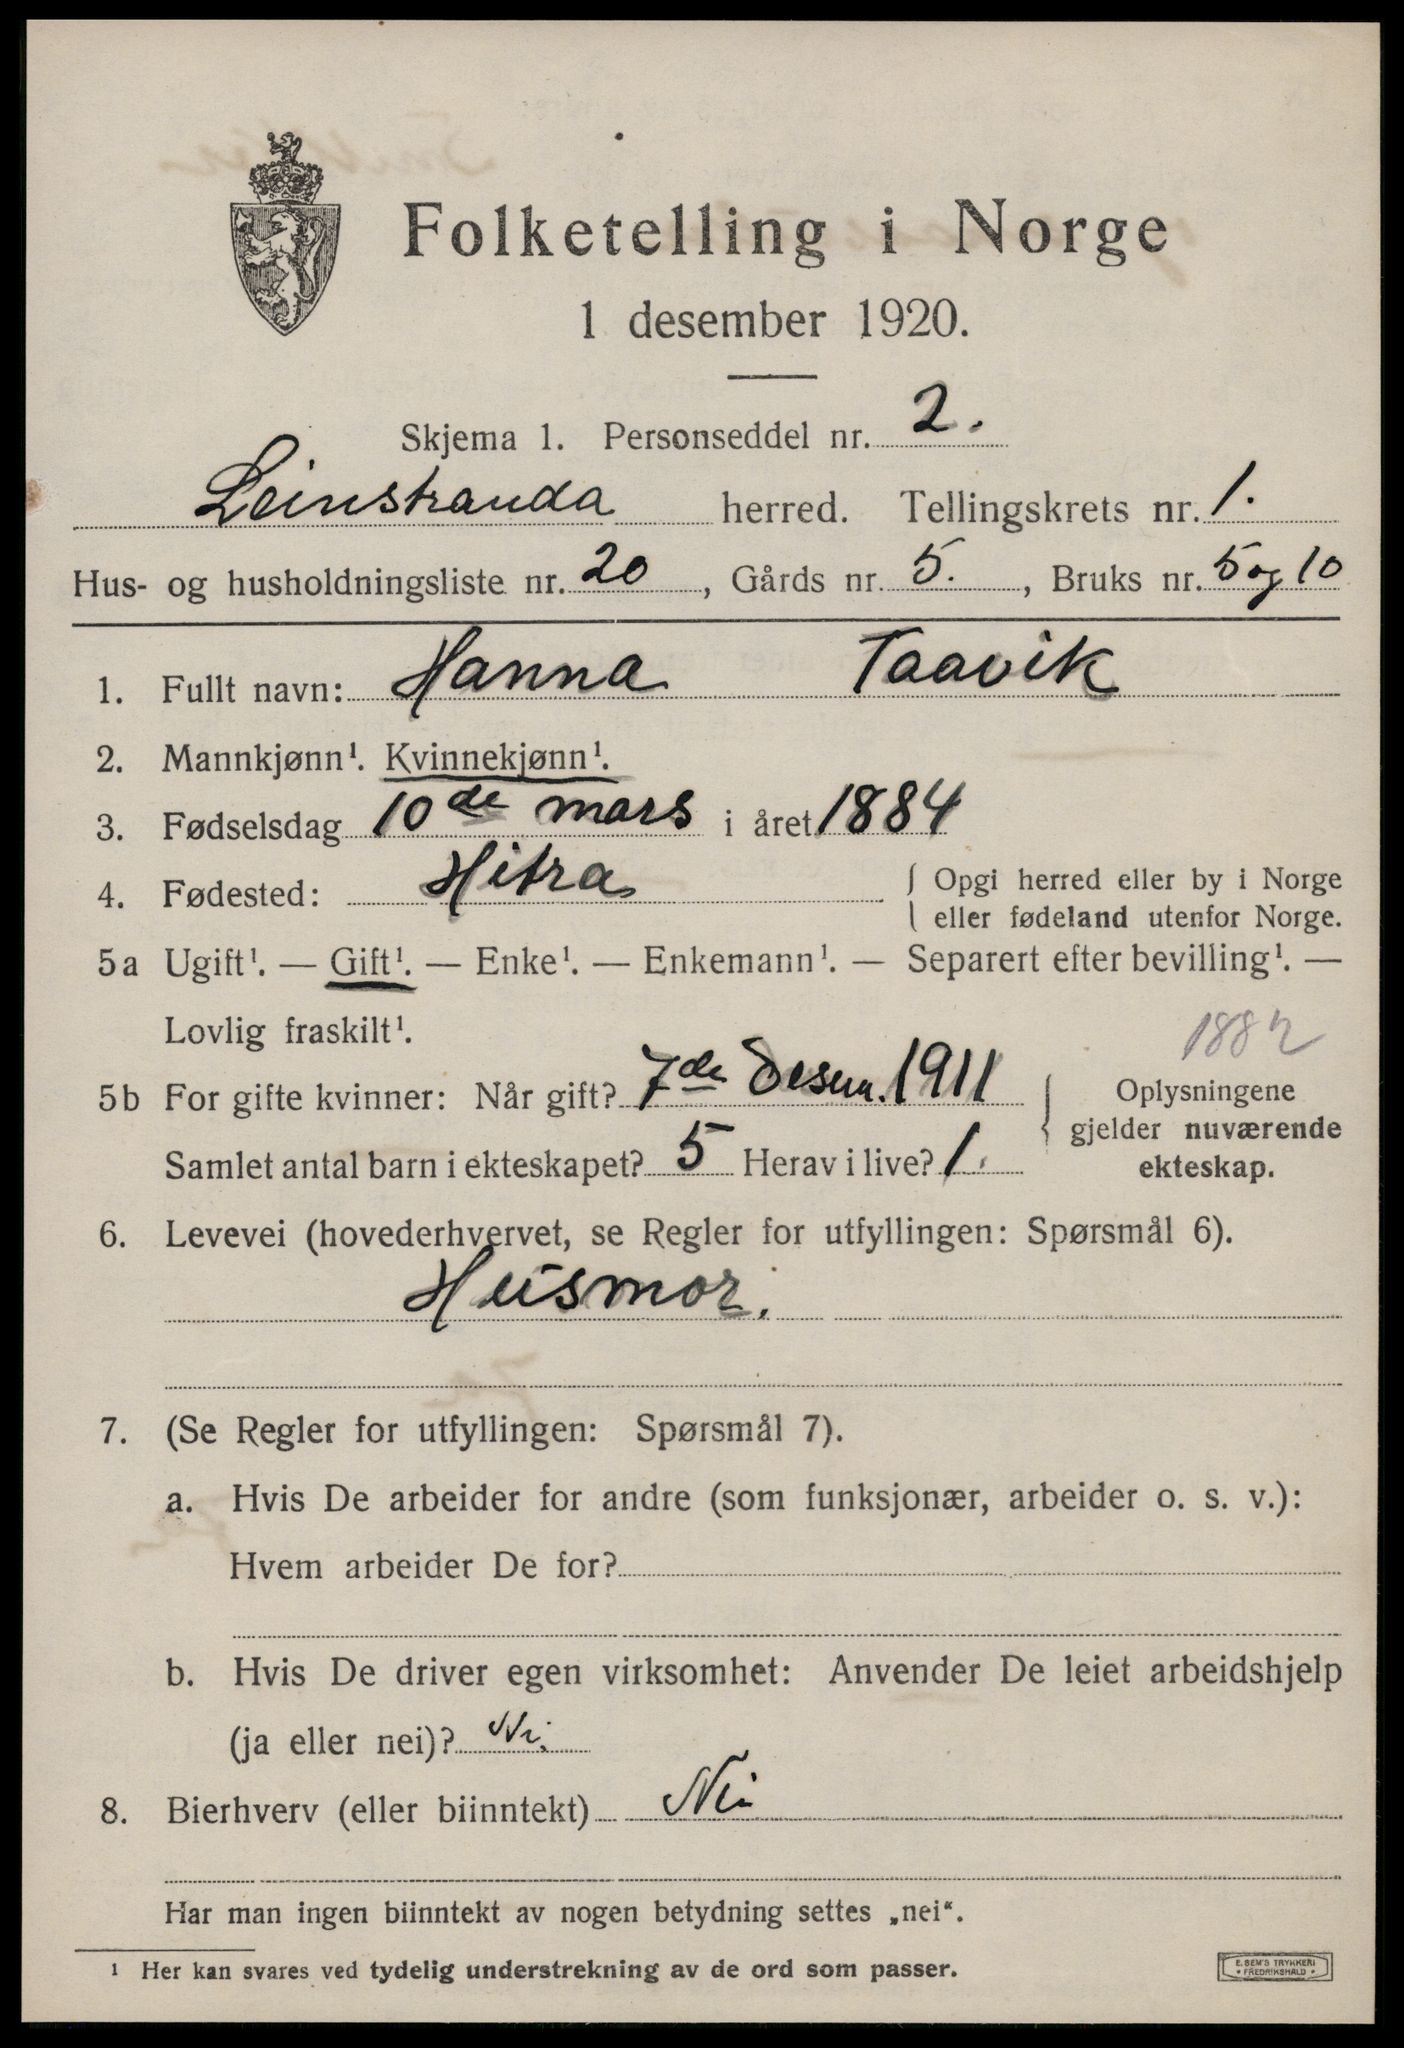 Folketelling i Norge
1 desember 1920.
Skjema 1. Personseddel nr. 2.
Leinstranda herred. Tellingskrets nr. 1.
Hus- og husholdningsliste nr. 20, Gårds nr. 5., Bruks nr. 5 og 10
1. Fullt navn: Hanna Taavik
2. Mannkjønn¹. Kvinnekjønn¹.
3. Fødselsdag 10de mars i året 1884
4. Fødested: Hitra { Opgi herred eller by i Norge
eller fødeland utenfor Norge.
5a Ugift¹. — Gift¹. — Enke¹. — Enkemann¹. — Separert efter bevilling¹. —
Lovlig fraskilt¹.
5b For gifte kvinner: Når gift? 7de Desem. 1911
Samlet antal barn i ekteskapet? 5 Herav i live? 1.
Oplysningene
gjelder nuværende
ekteskap.
6. Levevei (hovederhvervet, se Regler for utfyllingen: Spørsmål 6).
Husmor.
7. (Se Regler for utfyllingen: Spørsmål 7).
a. Hvis De arbeider for andre (som funksjonær, arbeider o. s. v.):
Hvem arbeider De for?
b. Hvis De driver egen virksomhet: Anvender De leiet arbeidshjelp
(ja eller nei)? Nei.
8. Bierhverv (eller biinntekt) Nei
Har man ingen biinntekt av nogen betydning settes „nei“.
¹ Her kan svares ved tydelig understrekning av de ord som passer.
E. SEM'S TRYKKERI
• FREDRIKSHALD •